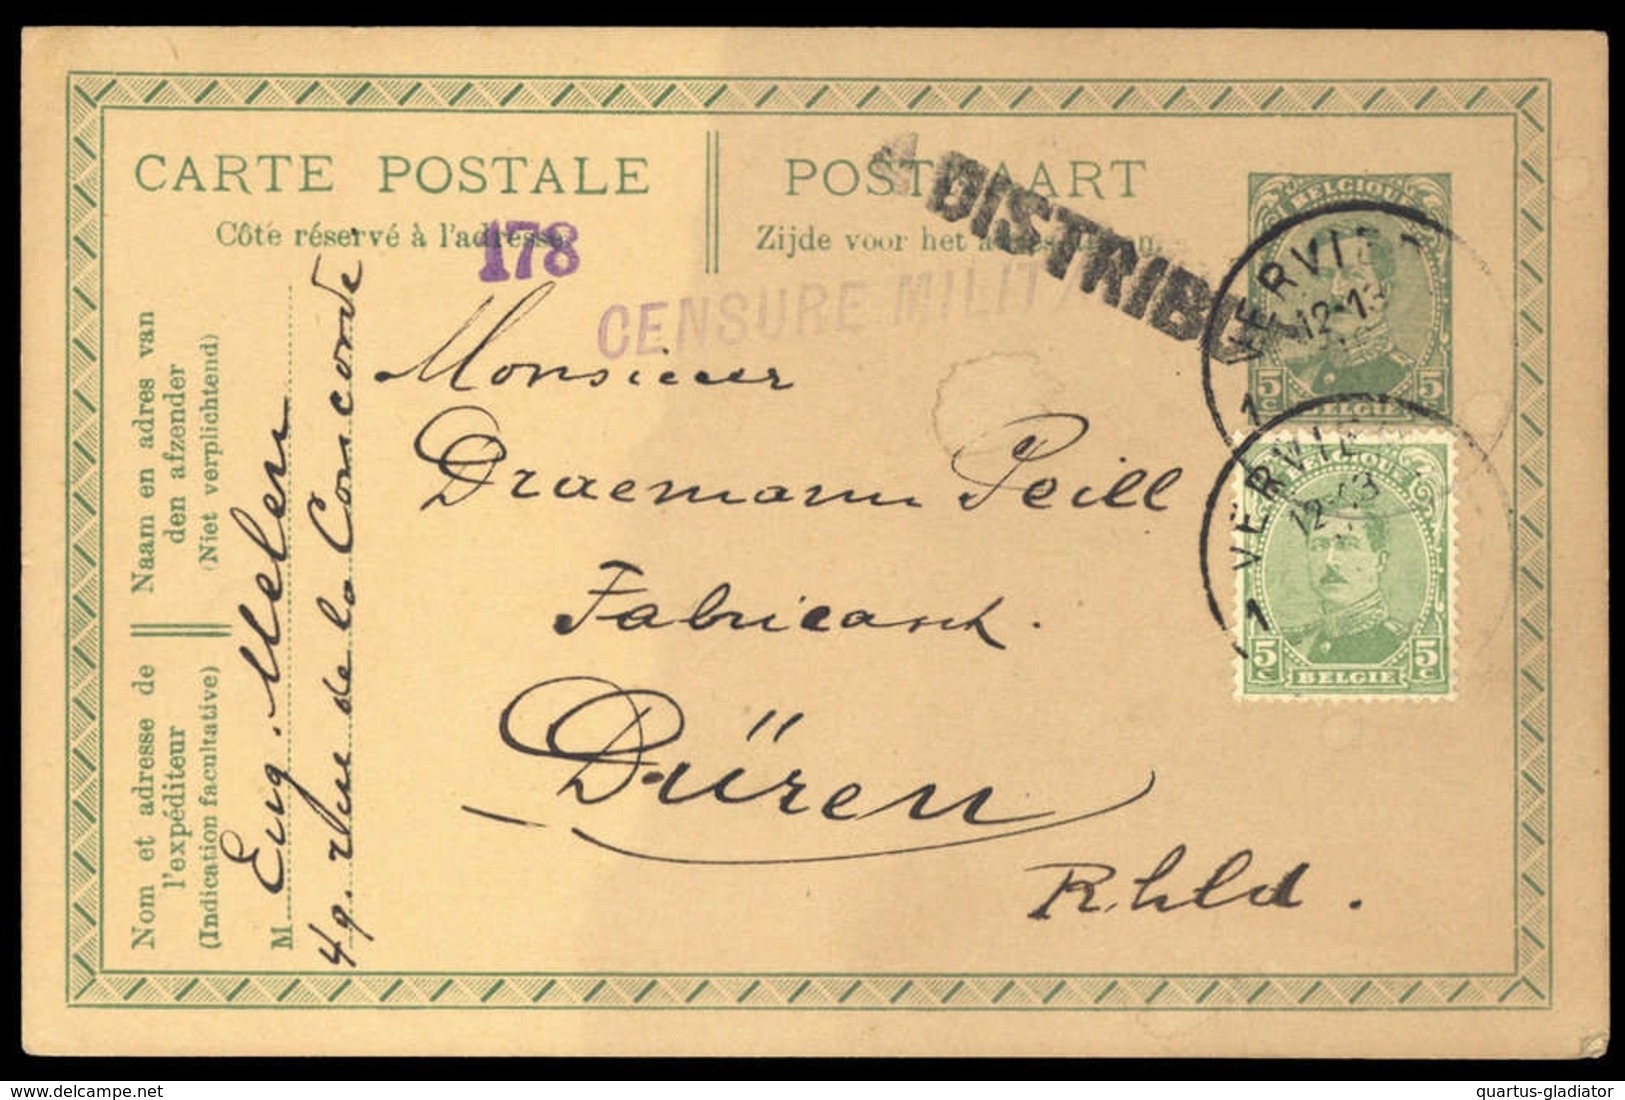 CARTE POSTALE
Côté réservé à l'adresse
POSTKAART
Zijde voor het
178
CENSURE MILIT
A DISTRIBUER
BELGIQUE
5c 5c
BELGIE
VERVIE
12-13
1
VERVIE
12-13
1
BELGIQUE
5c 5c
BELGIE
Naam en adres van
den afzender
(Niet verplichtend)
Nom et adresse de
l'expéditeur
(Indication facultative)
M
Eug. Melen
49. Rue de la Concorde
Monsieur
Draemann Peill
Fabricant.
Düren
Rhld.
delcampe.net
quartus-gladiator